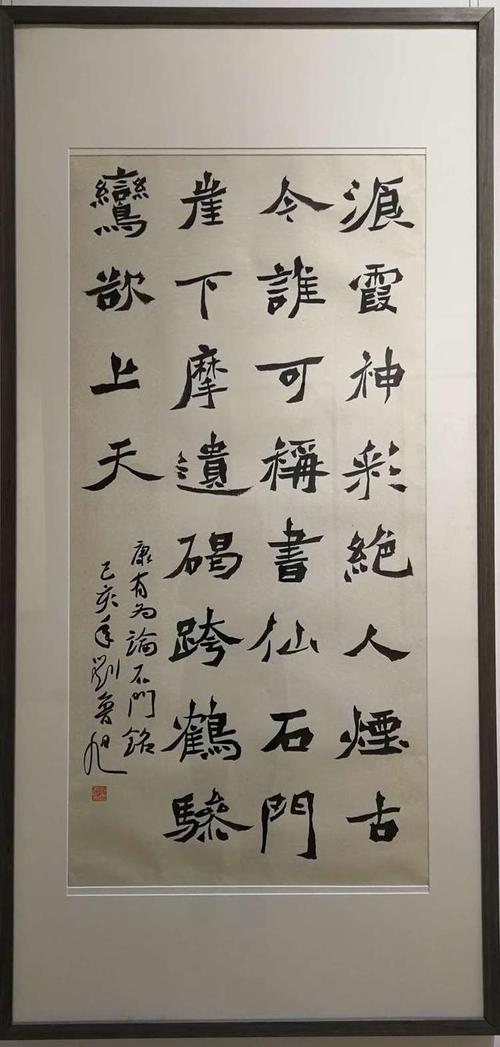 湌霞神彩絶人煙古
今誰可稱書仙石門
崖下摩遺碣跨鶴驂
鸞欲上天
康有为論石門銘
己亥年劉魯旭